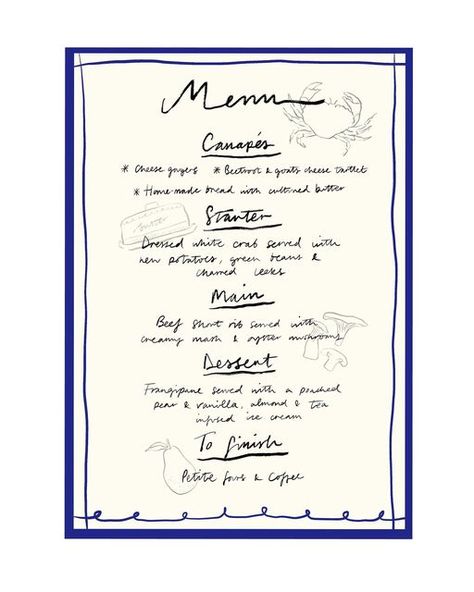 Menu
Canapés
* Cheese gougers * Beetroot & goats cheese tartlet
* Home-made bread with cultured butter
Starter
Dressed white crab served with
new potatoes, green beans &
charred leeks
Main
Beef Short rib served with
creamy mash & oyster mushrooms
Dessert
Frangipane served with a poached
pear & vanilla, almond & tea
infused ice cream
To finish
Petite fours & Coffee